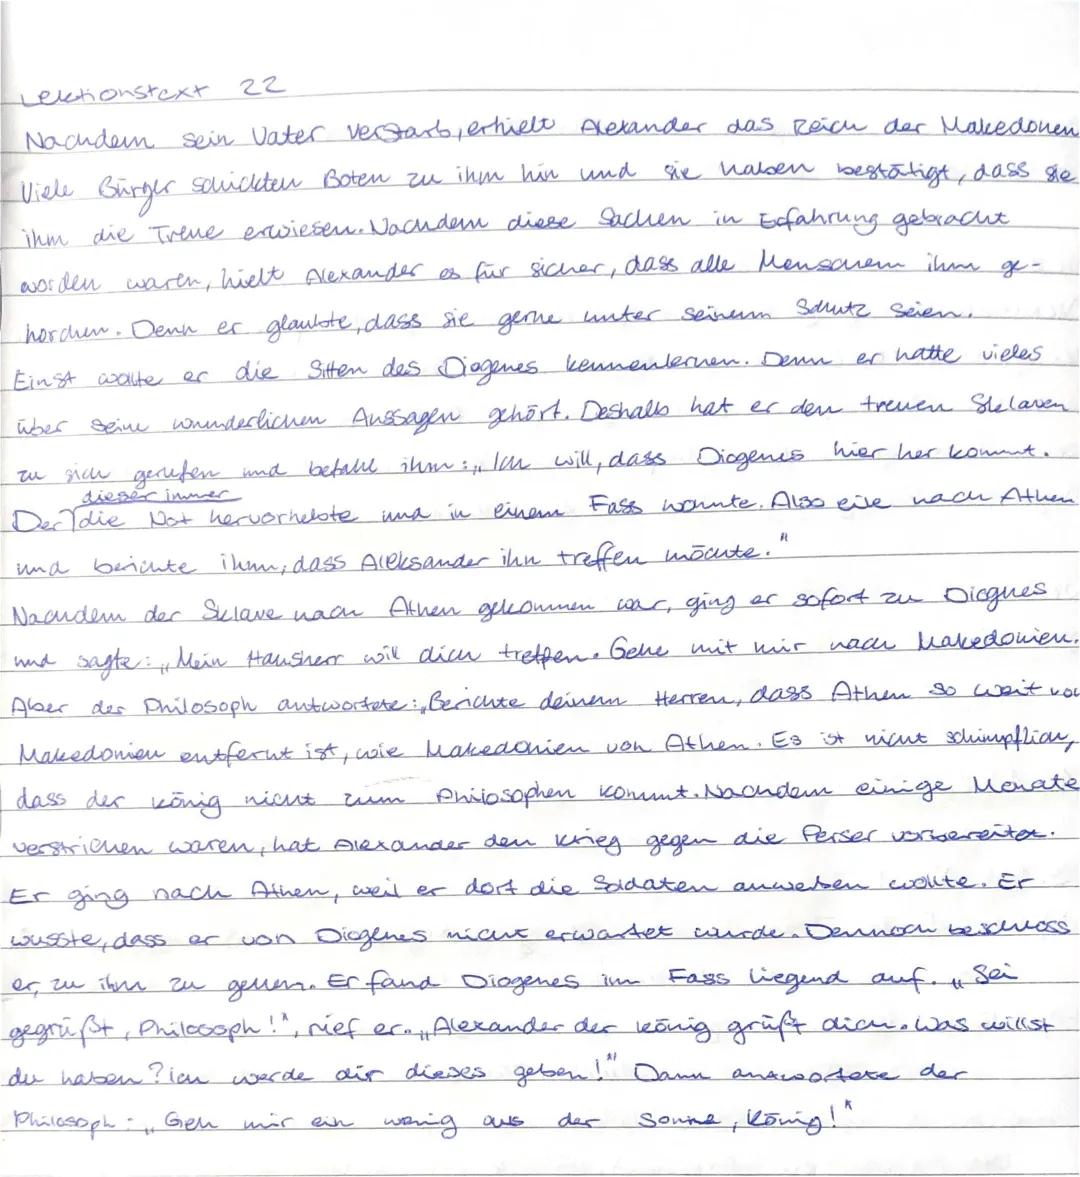 Lektionstext 22
Nachdem sein Vater verstarb, erhielt Alexander das Reich der Makedonen
Viele Bürger schickten Boten zu ihm hin und sie haben bestätigt, dass sie
ihm die Treue erwiesen. Nachdem diese Sachen in Erfahrung gebracht
worden waren, hielt Alexander es für sicher, dass alle Menschem ihm ge-
horchen. Denn er glaubte, dass sie gerne unter seinem Schutz seien.
Einst wollte er die Sitten des Diogenes kennenlernen. Denn er hatte vieles
über seine wunderlichen Aussagen gehört. Deshalb hat er den treuen Sklaven
zu sich gerufen und befahl ihm: „Ich will, dass Diogenes hier her kommt.
dieser immer
Der die Not hervorhebte und in einem Fass wohnte. Also eile nach Athen
und berichte ihm, dass Aleksander ihn treffen möchte."
Nachdem der Sklave nach Athen gekommen war, ging er sofort zu Diognes
und sagte: „Mein Hausherr will dich treffen. Gehe mit mir nach Makedonien.
Aber der Philosoph antwortete: „Berichte deinem Herren, dass Athen so weit von
Makedonien entfernt ist, wie Makedonien von Athen. Es ist nicht schimpflich,
dass der König nicht zum Philosophen kommt. Nachdem einige Monate
verstrichen waren, hat Alexander den Krieg gegen die Perser vorbereitet.
Er ging nach Athen, weil er dort die Soldaten anwerben wollte. Er
wusste, dass er von Diogenes nicht erwartet wurde. Dennoch beschloss
er, zu ihm zu gehen. Er fand Diogenes im Fass liegend auf. „Sei
gegrüßt, Philosoph!", rief er. „Alexander der König grüßt dich. Was willst
du haben? Ich werde dir dieses geben!" Dann antwortete der
Philosoph: „Geh mir ein wenig aus der Sonne, König!"